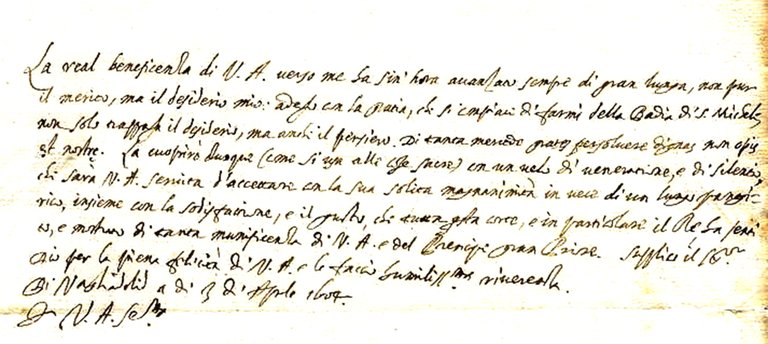 La real beneficenza di V. A. verso me ha sin' hora avanzato sempre di gran lunga, non pur
il merito, ma il desiderio mio: adesso con la gratia, che si compiace di farmi della Badia di S. Michele
non solo trapassa il desiderio, ma anche il pensiero. Di tanta mercede grates persolvere dignas non opis
est nostre. La cuoprirò dunque (come si usa alle cose sacre) con un velo di veneratione, e di silentio,
che sarà V. A. servita d'accettare con la sua solita magnanimità in vece di un lungo panegi-
rico, insieme con la sodisfatione, e il gusto, che tutta questa corte, e in particolare il Re ha senti
to, e mostrato di tanta munificenza di V. A. e del Prencipe gran Priore. Supplico il
Dio per la piena felicità di V. A. e le faccio humiliss.ma riverenza.
Di Vagliadolid a di 3 di Aprile 1604.
Di V. A. Ser.ma